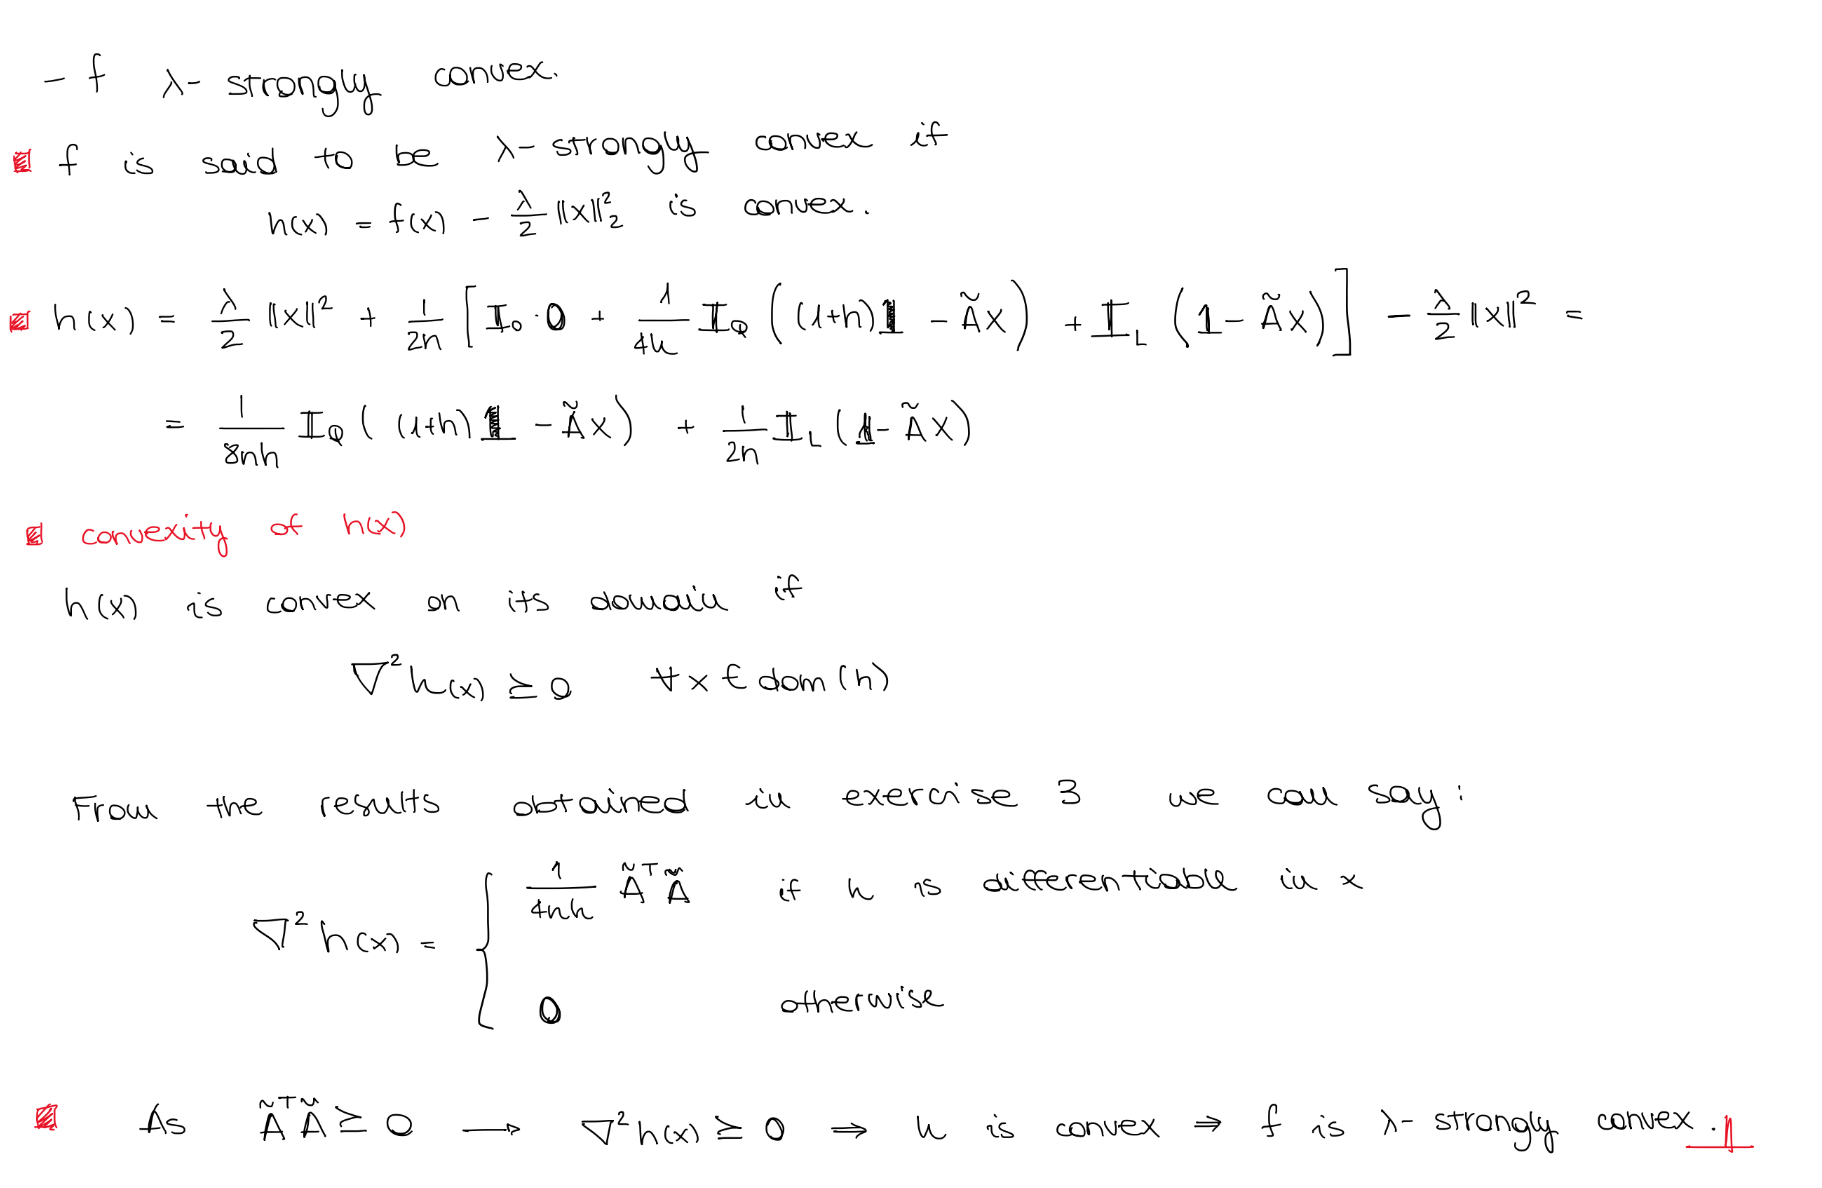 - f λ- strongly convex.
f is said to be λ- strongly convex if
h(x) = f(x) - λ/2 ||x||²₂ is convex.
h(x) = λ/2 ||x||² + 1/2n [ 𝕀₀ · 0 + 1/4h 𝕀_Q ((1+h)𝟙 - Ãx) + 𝕀_L (𝟙 - Ãx) ] - λ/2 ||x||² =
= 1/8nh 𝕀_Q ( (1+h)𝟙 - Ãx) + 1/2n 𝕀_L (𝟙 - Ãx)
convexity of h(x)
h(x) is convex on its domain if
∇²h(x) ⪰ 0 ∀ x ∈ dom(h)
From the results obtained in exercise 3 we can say:
∇²h(x) = { 1/4nh ÃᵀÃ if h is differentiable in x
0 otherwise
As ÃᵀÃ ⪰ 0 → ∇²h(x) ⪰ 0 ⇒ h is convex ⇒ f is λ- strongly convex.